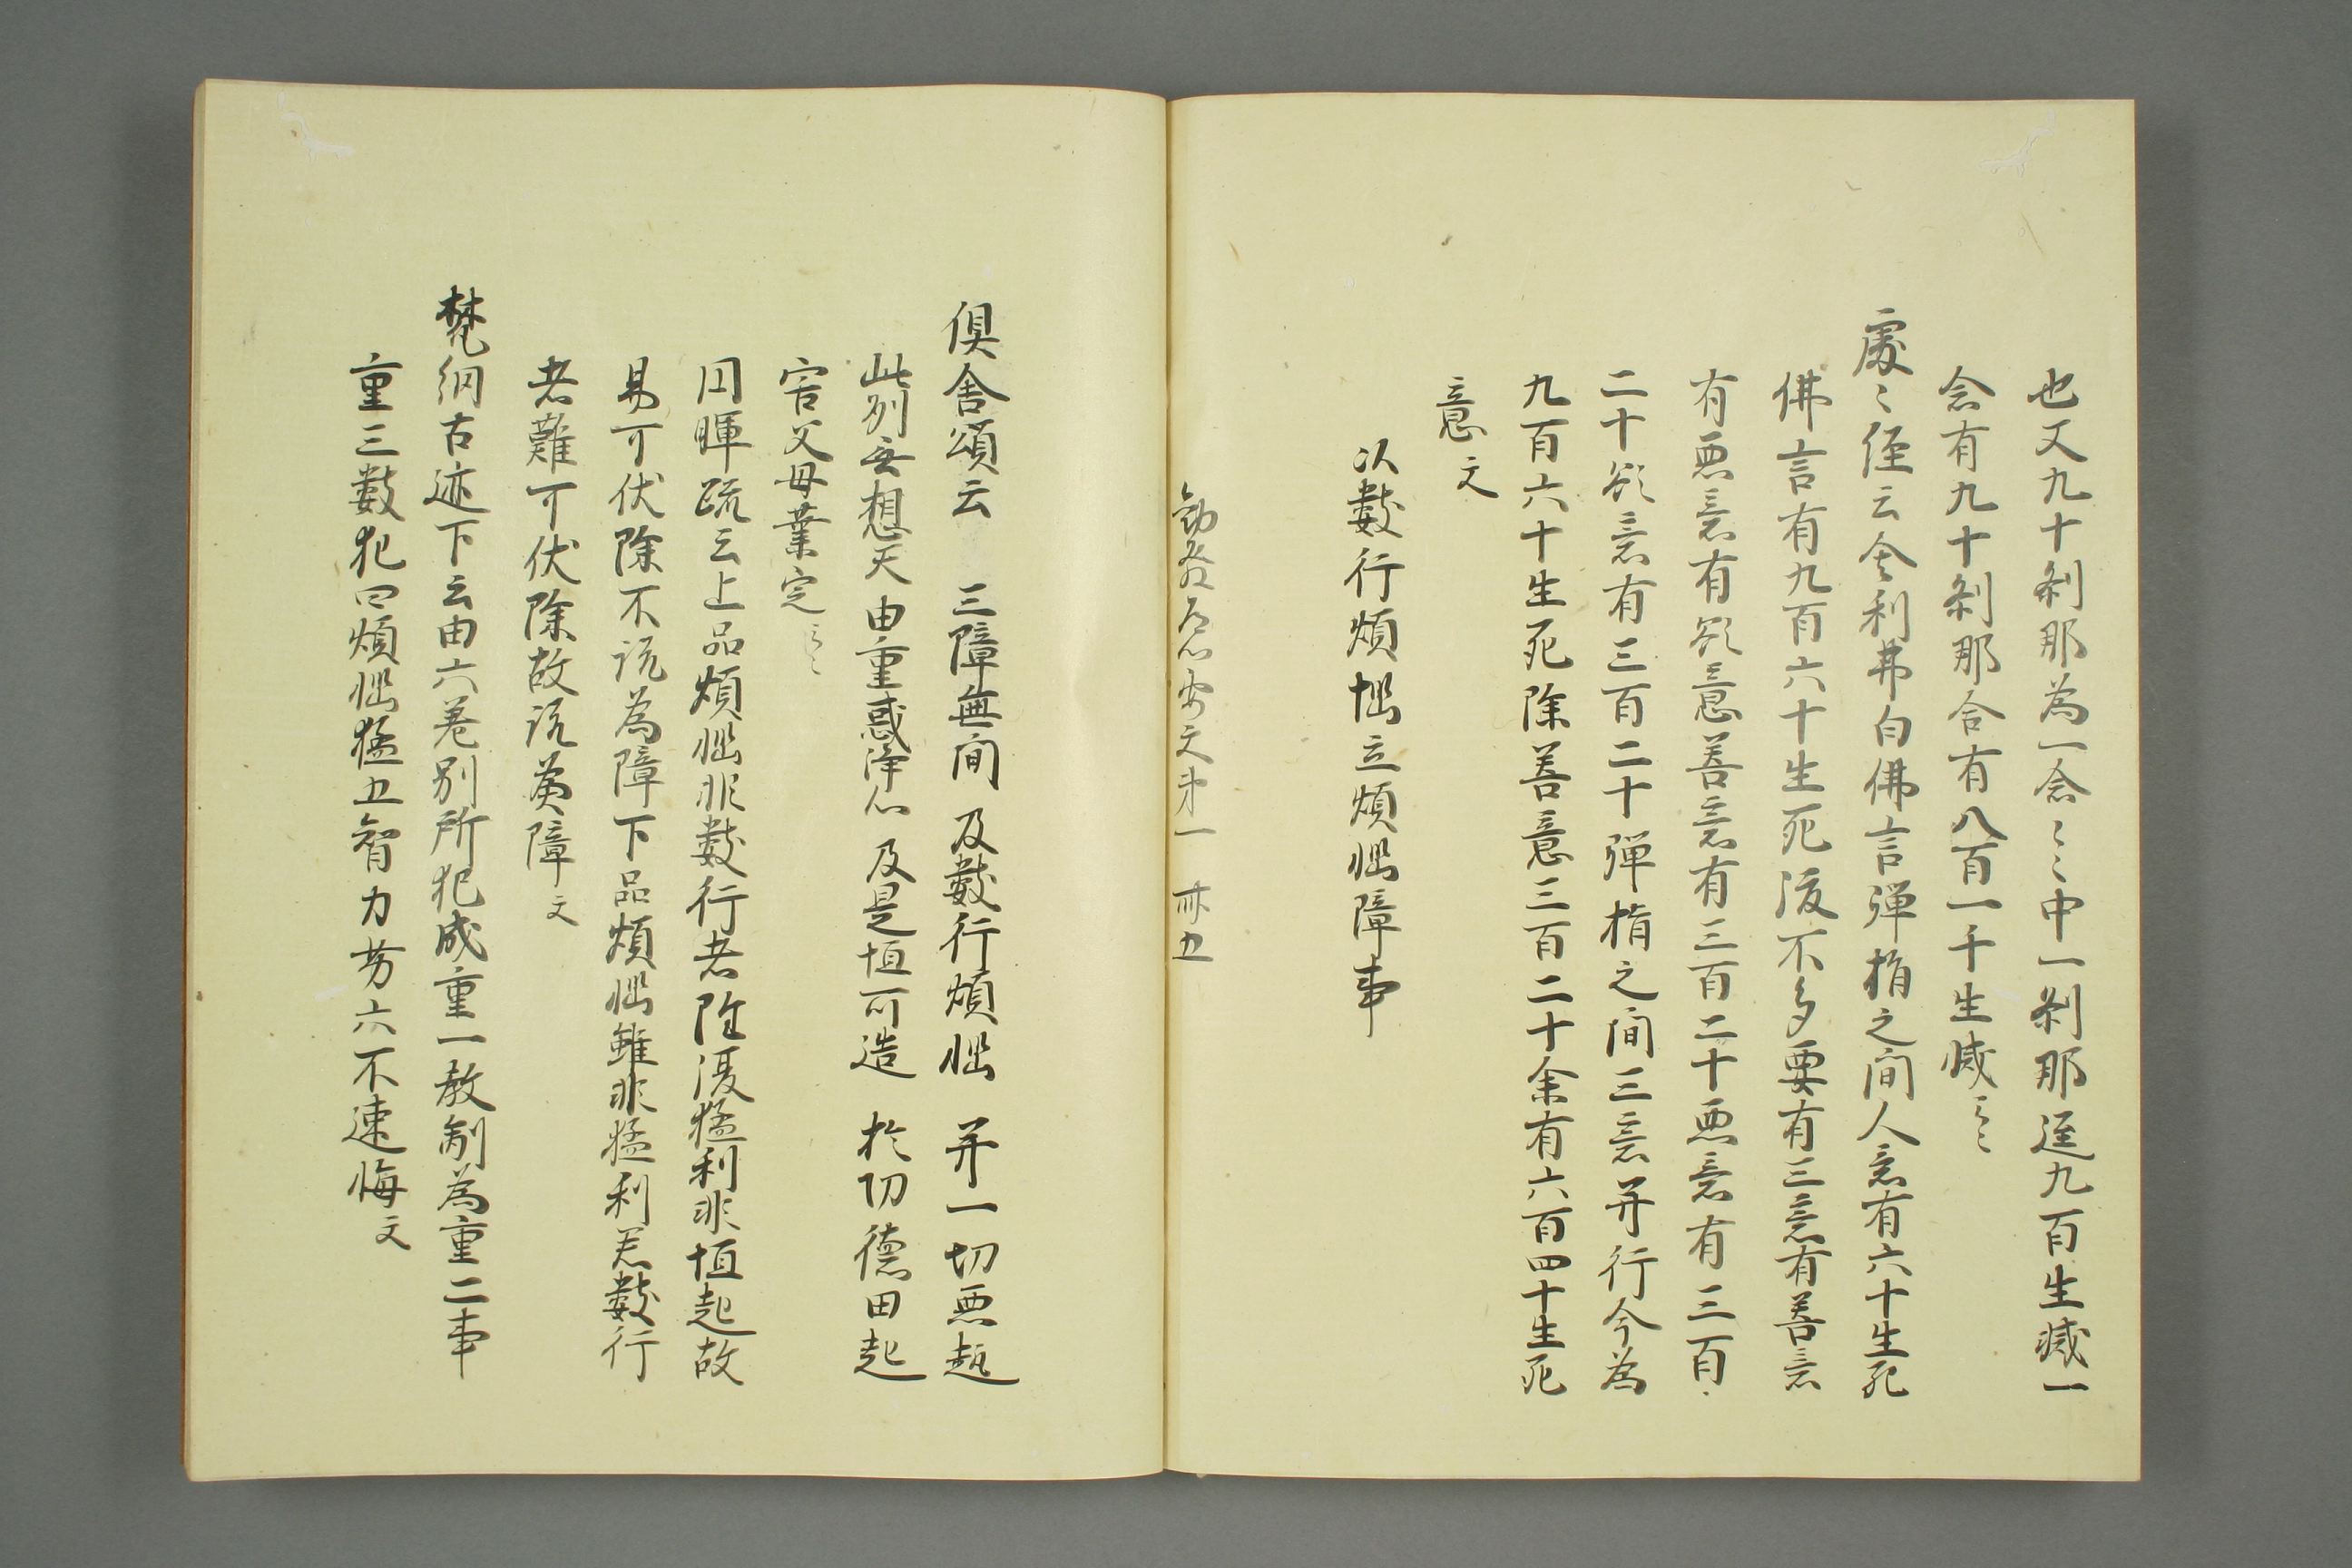 也又九十刹那為一念〻〻中一刹那逕九百生滅一
念有九十刹那合有八百一千生滅云〻
處〻経云舎利弗白佛言弾指之間人意有六十生死
佛言有九百六十生死復不多要有三意有善意
有悪意有欲意善意有三百二十悪意有三百
二十欲意有三百二十弾指之間三意并行今為
九百六十生死除善意三百二十余有六百四十生死
意文
以數行煩惱立煩惱障事
勸發菩提心 文 第一
倶舎頌云 三障無間 及數行煩惱 并一切悪趣
此別無想天由重惑浄心 及是恒可造 於功徳田起
害父母業定云〻
円暉疏云上品煩惱非數行者 復猛利非恒起故
易可伏除不説為障下品煩惱雖非猛利若數行
者難可伏除故説為障文
梵網古迹下云由六差別所犯成重一教制為重二事
重三數犯四煩惱猛五智力劣六不速悔文